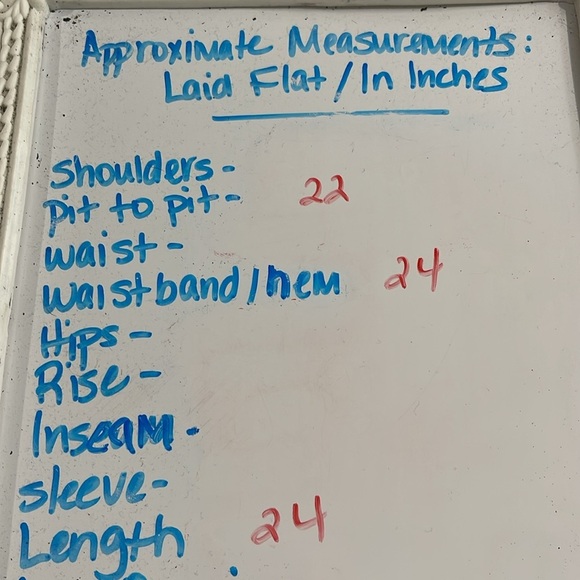 Approximate Measurements:
Laid Flat / In Inches
Shoulders-
pit to pit- 22
waist-
waistband/hem 24
Hips-
Rise-
Inseam-
sleeve-
Length 24